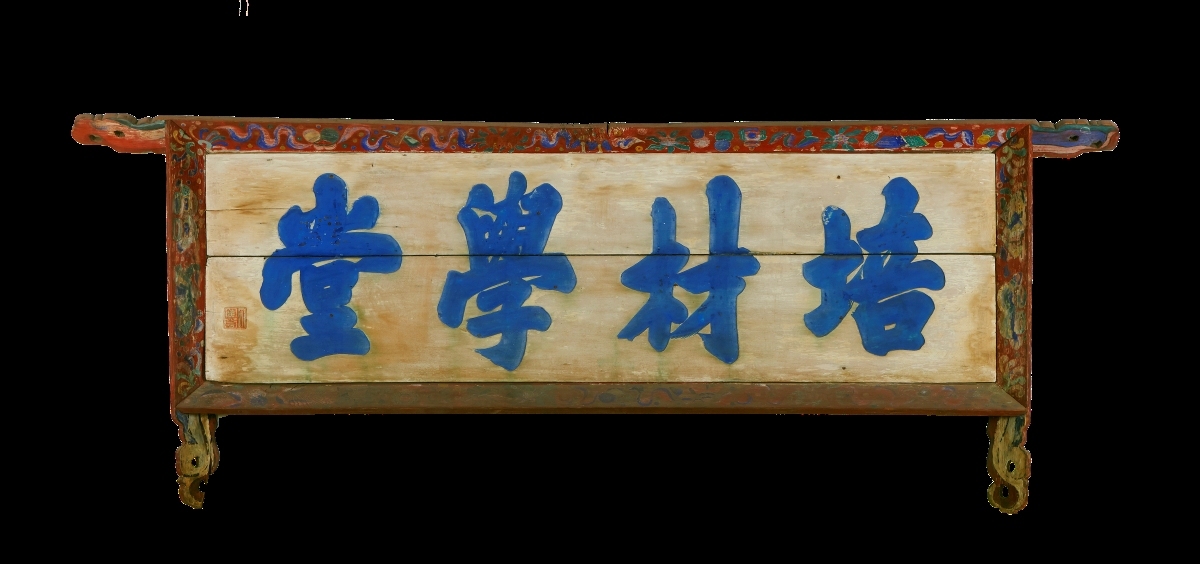 培材學堂